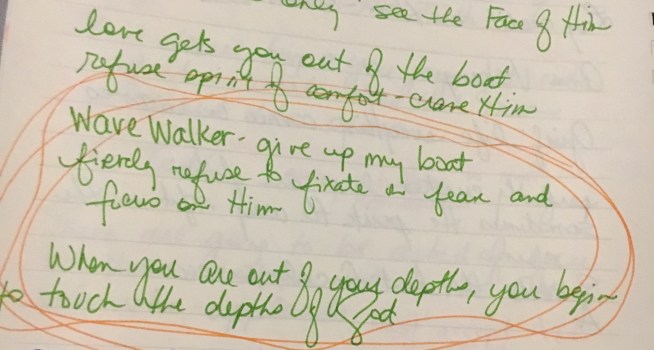 only see the Face of Him
love gets you out of the boat
refuse spirit of comfort - crave Him
Wave Walker - give up my boat
fiercly refuse to fixate on fear and
focus on Him
When you are out of your depths, you begin
to touch the depths of God